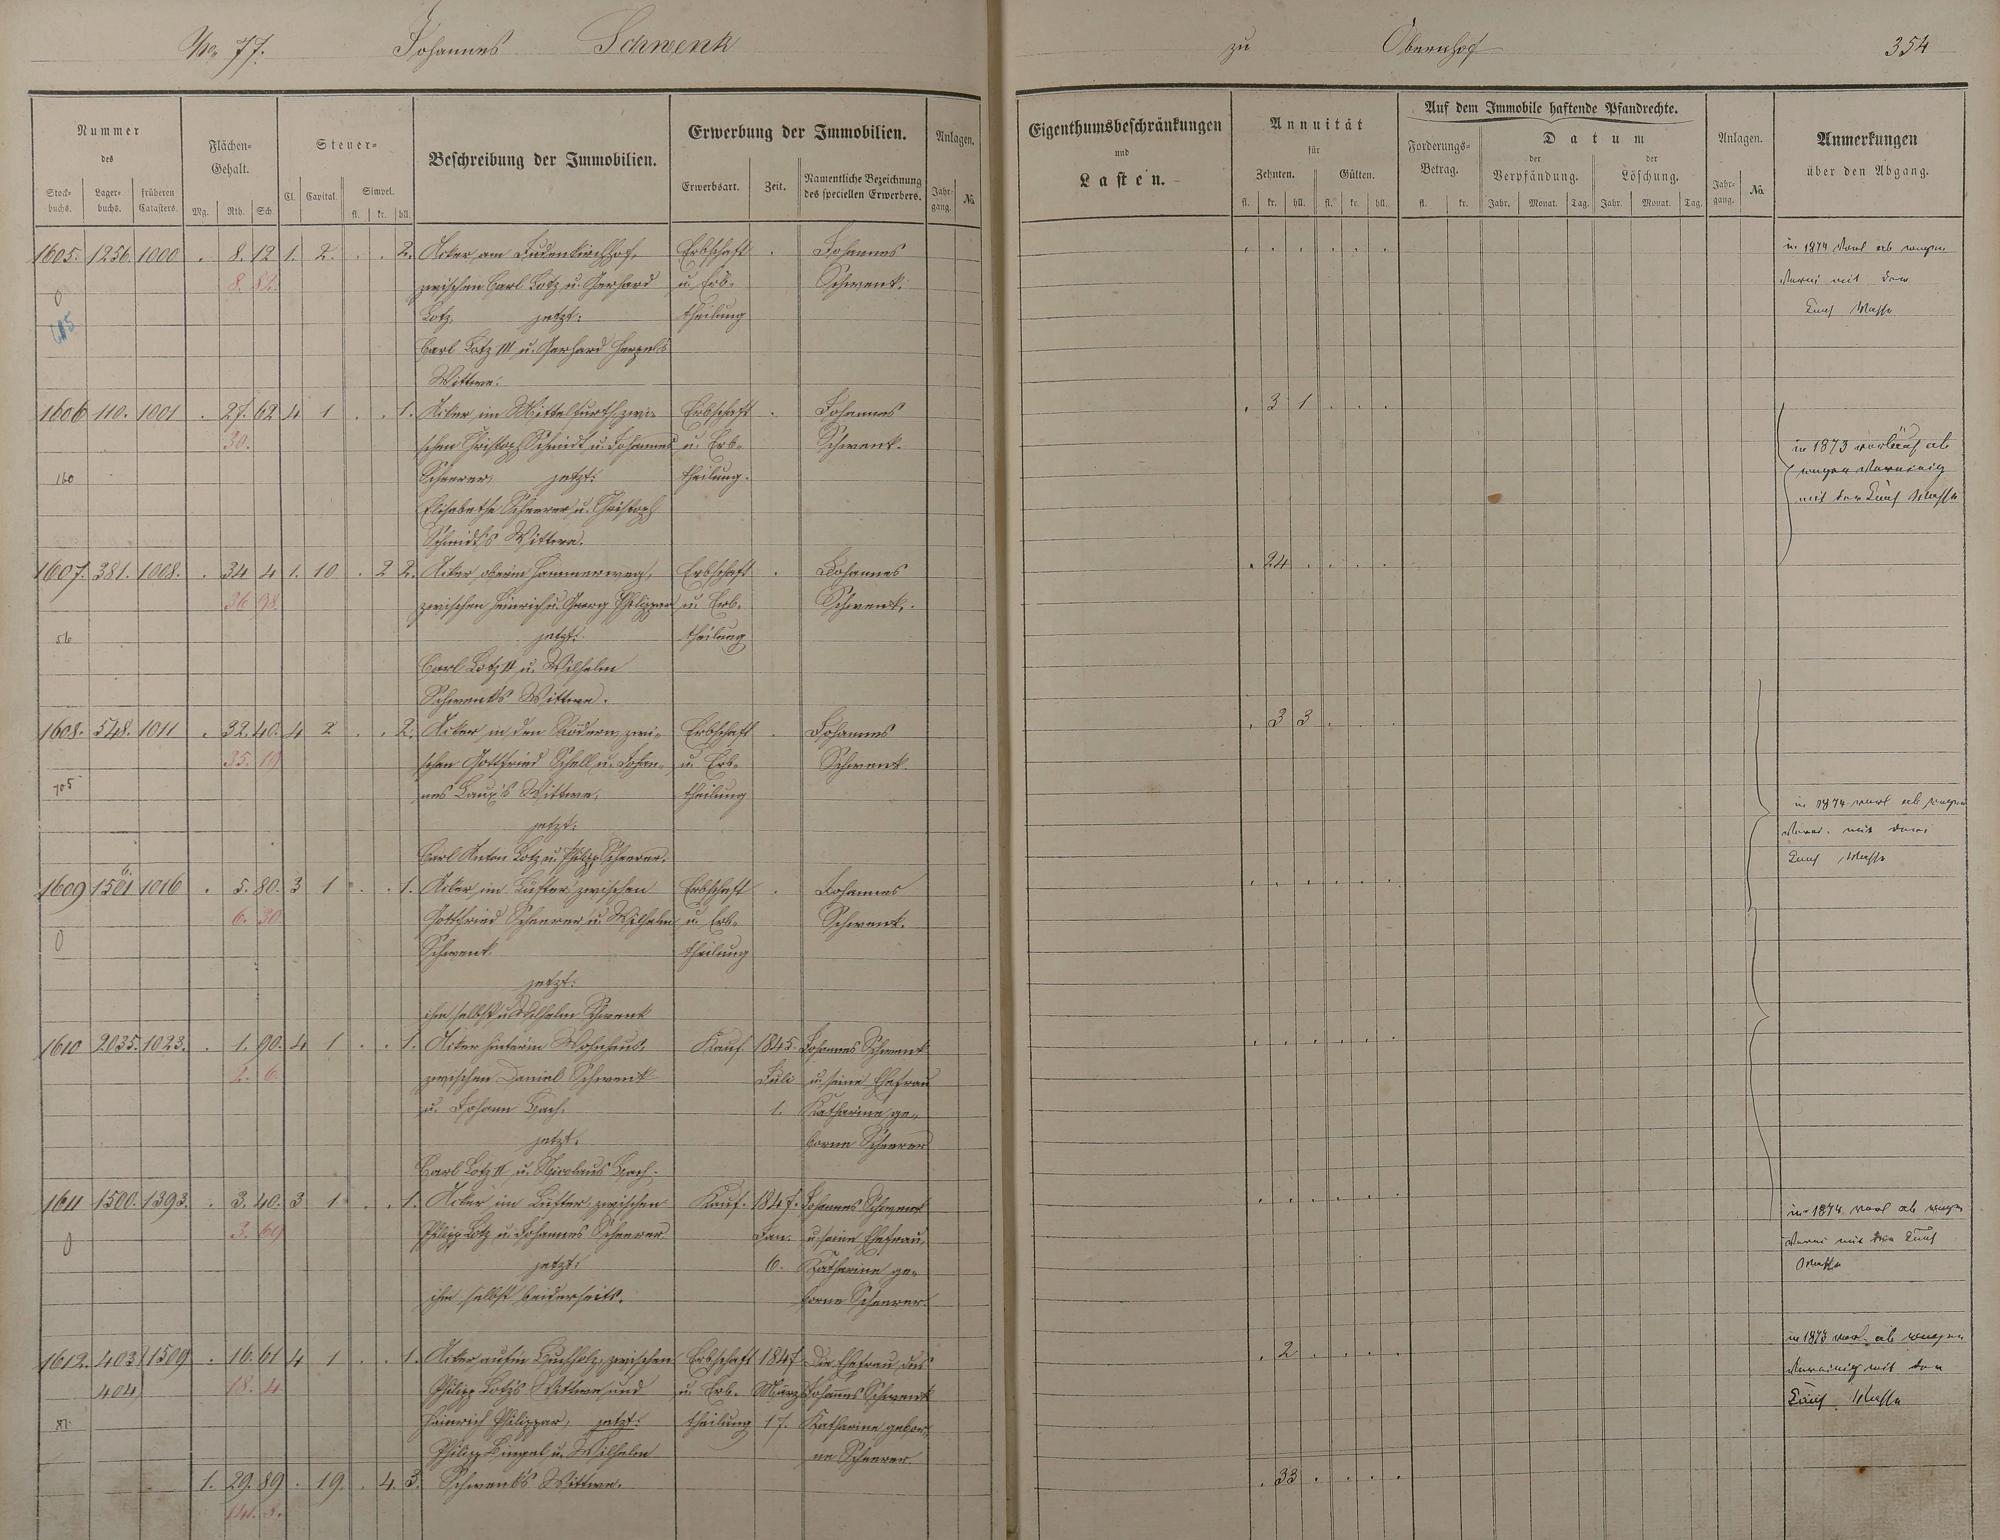 No 77. Johannes Schwenk zu Obernhof 354
Nummer
des
Stock-buchs. Lager-buchs. früheren Catasters.
Flächen-Gehalt.
Mg. Rth. Sch.
Steuer-
Cl. Capital. Simpel.
fl. kr. hll.
Beschreibung der Immobilien.
Erwerbung der Immobilien.
Erwerbsart. Zeit. Namentliche Bezeichnung des speciellen Erwerbers.
Anlagen.
Jahr-gang. No.
Eigenthumsbeschränkungen
und
Lasten.
Annuität
für
Zehnten. Gülten.
fl. kr. hll. fl. kr. hll.
Auf dem Immobile haftende Pfandrechte.
Forderungs-Betrag.
fl. kr.
Datum
der Verpfändung. der Löschung.
Jahr. Monat. Tag. Jahr. Monat. Tag.
Anlagen.
Jahr-gang. No.
Anmerkungen
über den Abgang.
1605. 1256. 1000 . 8. 12 1. 2. . . 2. Acker am Judenkirchhof, Erbschaft . Johannes
8. 82. zwischen Carl Lotz u. Gerhard u. Erb- Schwenk.
0 Lotz, jetzt: theilung
615
Carl Lotz III u. Gerhard
Wittwe.
in 1874 vorl ab wegen
mit der
Masse
1606 110. 1001 . 27. 62 4 1 . . 1. Acker im Mittelfurth, zwi- Erbschaft . Johannes . 3 1 . . .
30. schen Christoph Schmidt u. Johannes u. Erb- Schwenk.
160 Scheerer, jetzt: theilung.
Elisabetha Scheerer u. Christoph
Schmidt's Wittwe.
in 1873 vorläuf ab
wegen Vereinig
mit der Masse
1607. 381. 1008. . 34 4 1. 10 . 2 2. Acker, oberm Hammerweg, Erbschaft . Johannes . 24 . . . .
36 98. zwischen Heinrich u. Georg Philippar u. Erb- Schwenk.
56 jetzt: theilung
Carl Lotz II u. Wilhelm
Schwenk's Wittwe.
1608. 548. 1011 . 32. 40. 4 2 . . 2. Acker, in den Rödern, zwi- Erbschaft . Johannes . 3 3 . . .
35. 19 schen Gottfried Schell u. Johan- u. Erb- Schwenk.
705 nes Wittwe, theilung
jetzt:
Carl Anton Lotz u. Philipp Scheerer.
in 1874 vorl ab wegen
mit der
Masse
1609 1501 1016 . 5. 80. 3 1 . . 1. Acker im Lüfter zwischen Erbschaft . Johannes
6. 30 Gottfried Scheerer u. Wilhelm u. Erb- Schwenk.
0 Schwenk. theilung
jetzt:
ihm selbst u. Wilhelm Schwenk
1610 2035. 1023. . 1. 90. 4 1 . . 1. Acker hinterm Wohnhaus, Kauf. 1845. Johannes Schwenk
2. 6. zwischen Daniel Schwenk Juli u. seine Ehefrau
u. Johann Bach. 1. Katharina ge-
jetzt. borne Scheerer
Carl Lotz II u. Nicolaus Bach.
1611 1500. 1393. . 3. 40. 3 1 . . 1. Acker im Lüfter, zwischen Kauf. 1847. Johannes Schwenk
3. 69 Philipp Lotz u. Johannes Scheerer Jan. u. seine Ehefrau,
0 jetzt: 6. Katharina ge-
ihm selbst beiderseits. borne Scheerer.
in 1874 vorl ab wegen
mit der
Masse
1612. 403/ 1509 . 16. 61 4 1 . . 1. Acker auf'm Buchholz, zwischen Erbschaft 1847 Die Ehefrau des . 2 . . . .
404 18. 4 Philipp Lotz's Wittwe und u. Erb- März Johannes Schwenk
81. Heinrich Philippar, jetzt: theilung 17. Katharina gebor-
Philipp u. Wilhelm ne Scheerer
1. 29. 89 . 19. . 4. 3. Schwenk's Wittwe. . 33 . . . .
141. 8.
in 1873 vorl. ab wegen
Vereinig mit der
Masse